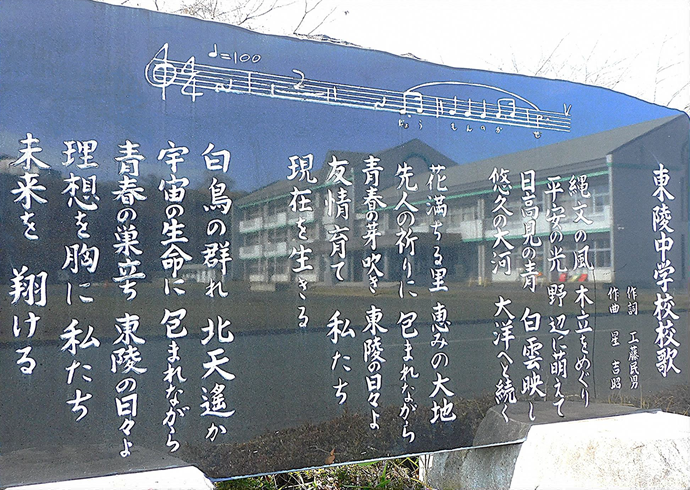 ♩=100
じょう もんのか ぜ
東陵中学校校歌
作詞 工藤民男
作曲 星 吉昭
縄文の風 木立をめぐり
平安の光 野辺に萌えて
日高見の青 白雲映し
悠久の大河 大洋へと続く
花満ちる里 恵みの大地
先人の祈りに 包まれながら
青春の芽吹き 東陵の日々よ
友情育て 私たち
現在を生きる
白鳥の群れ 北天遙か
宇宙の生命に 包まれながら
青春の巣立ち 東陵の日々よ
理想を胸に 私たち
未来を 翔ける